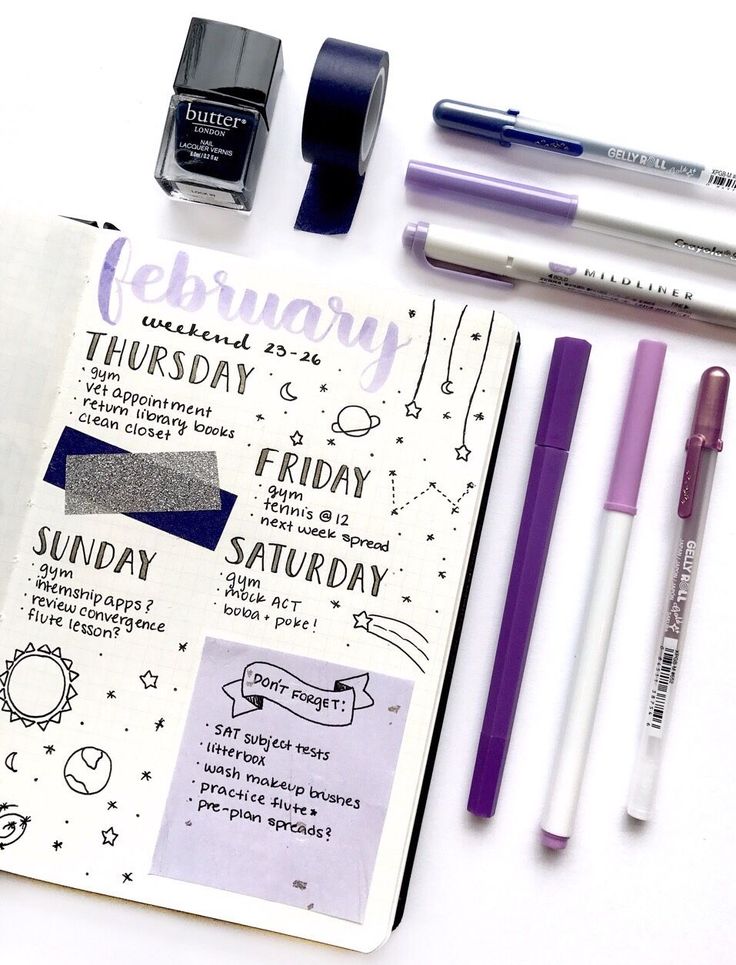 butter®
LONDON
NAIL
LACQUER VERNIS
GELLY ROLL
Crayola
MILDLINER
february
weekend 23-26
THURSDAY
· gym
· vet appointment
· return library books
· clean closet
FRIDAY
· gym
· tennis @ 12
· next week spread
SUNDAY
· gym
· internship apps?
· review convergence
· flute lesson?
SATURDAY
· gym
· mock ACT
· boba + poke!
DON'T FORGET:
· SAT subject tests
· litterbox
· wash makeup brushes
· practice flute*
· pre-plan spreads?
GELLY ROLL